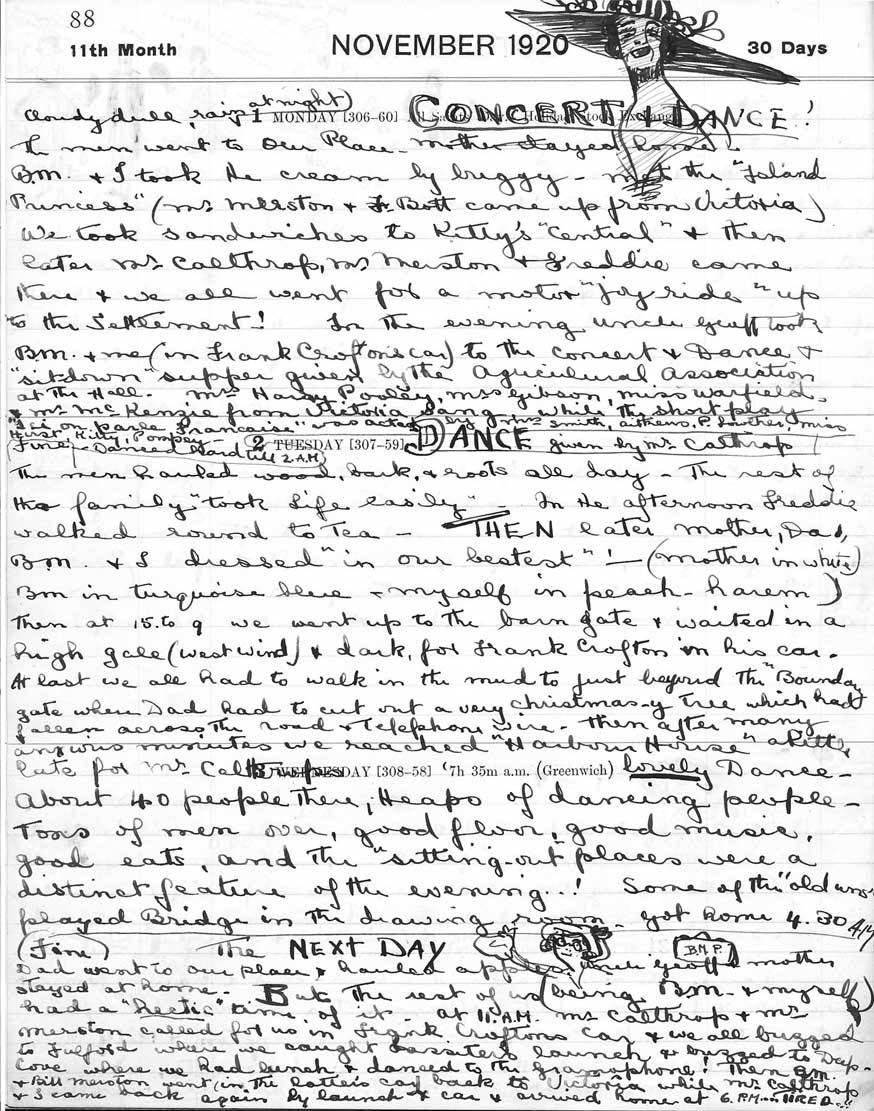 88
11th Month NOVEMBER 1920 30 Days
Cloudy dull, rain at night) 1 MONDAY [306-60] CONCERT & DANCE!
The men went to Our Place - mother stayed home.
B.M. & I took the cream by buggy - met the "Island
Princess" (Mr Merston & F. Bott came up from Victoria)
We took sandwiches to Kitty's "Central" & then
later Mr Calthrop, Mr Merston & Freddie came
there & we all went for a motor "joy-ride" up
to the Settlement! In the evening uncle Geoff took
B.M. & me (in Frank Crofton's car) to the Concert & Dance &
"sit-down" supper given by the Agricultural Association
at the Hall. Mrs Harry Pooley, Mrs Gibson, Miss Warfield,
& Mr McKenzie from Victoria sang - while the short play
"Ici on parle Francaise" was acted by Mrs Smith, Aitkens, P. Lowther, Miss
Hurst, Kitty, Pompey -
Fine - Danced hard till 2 A.M. 2 TUESDAY [307-59] DANCE given by Mr Calthrop
The men hauled wood, bark, & roots all day - The rest of
the family "took life easily" - In the afternoon Freddie
walked round to Tea - THEN later mother, Dad,
B.M. & I dressed "in our bestest"! - (mother in white)
Bm in turquoise blue - myself in peach-harem)
Then at 15. to 9 we went up to the barn gate & waited in a
high gale (west wind) & dark, for Frank Crofton in his car.
At last we all had to walk in the mud to just beyond the "Boundary
gate where Dad had to cut out a very Christmas-y Tree which had
fallen across the road & Telephone wire - then after many
anxious minutes we reached "Harbour House" a little
late for Mr Calthrop's 3 WEDNESDAY [308-58] 7h 35m a.m. (Greenwich) lovely Dance -
About 40 people there, Heaps of dancing people -
Tons of men over, good floor, good music,
good eats, and the "sitting-out" places were a
distinct feature of the evening..! Some of the "old uns"
played Bridge in the drawing room - got home 4.30 A.M.
(Fine) The NEXT DAY B.M.P.
Dad went to our place & hauled apples uncle Geoff & mother
stayed at home. But the rest of us (being B.M. & myself)
had a "hectic" time of it - at 11 A.M. Mr Calthrop & Mr
Merston called for us in Frank Croftons Car & we all buzzed
to Fulford where we caught Lassiters launch & buzzed to Deep-
Cove where we had lunch & danced to the gramophone! Then B.M.
& Bill Merston went (in the latter's car) back to Victoria while Mr Calthrop
& I came back again by launch & car & arrived home at 6. P.M... TIRED..!!